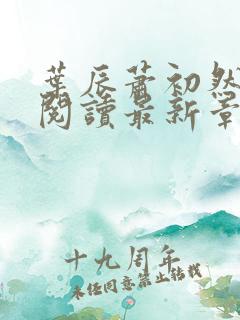 葉辰蕭初然
閱讀最新章
十九周年
未經同意禁止轉載